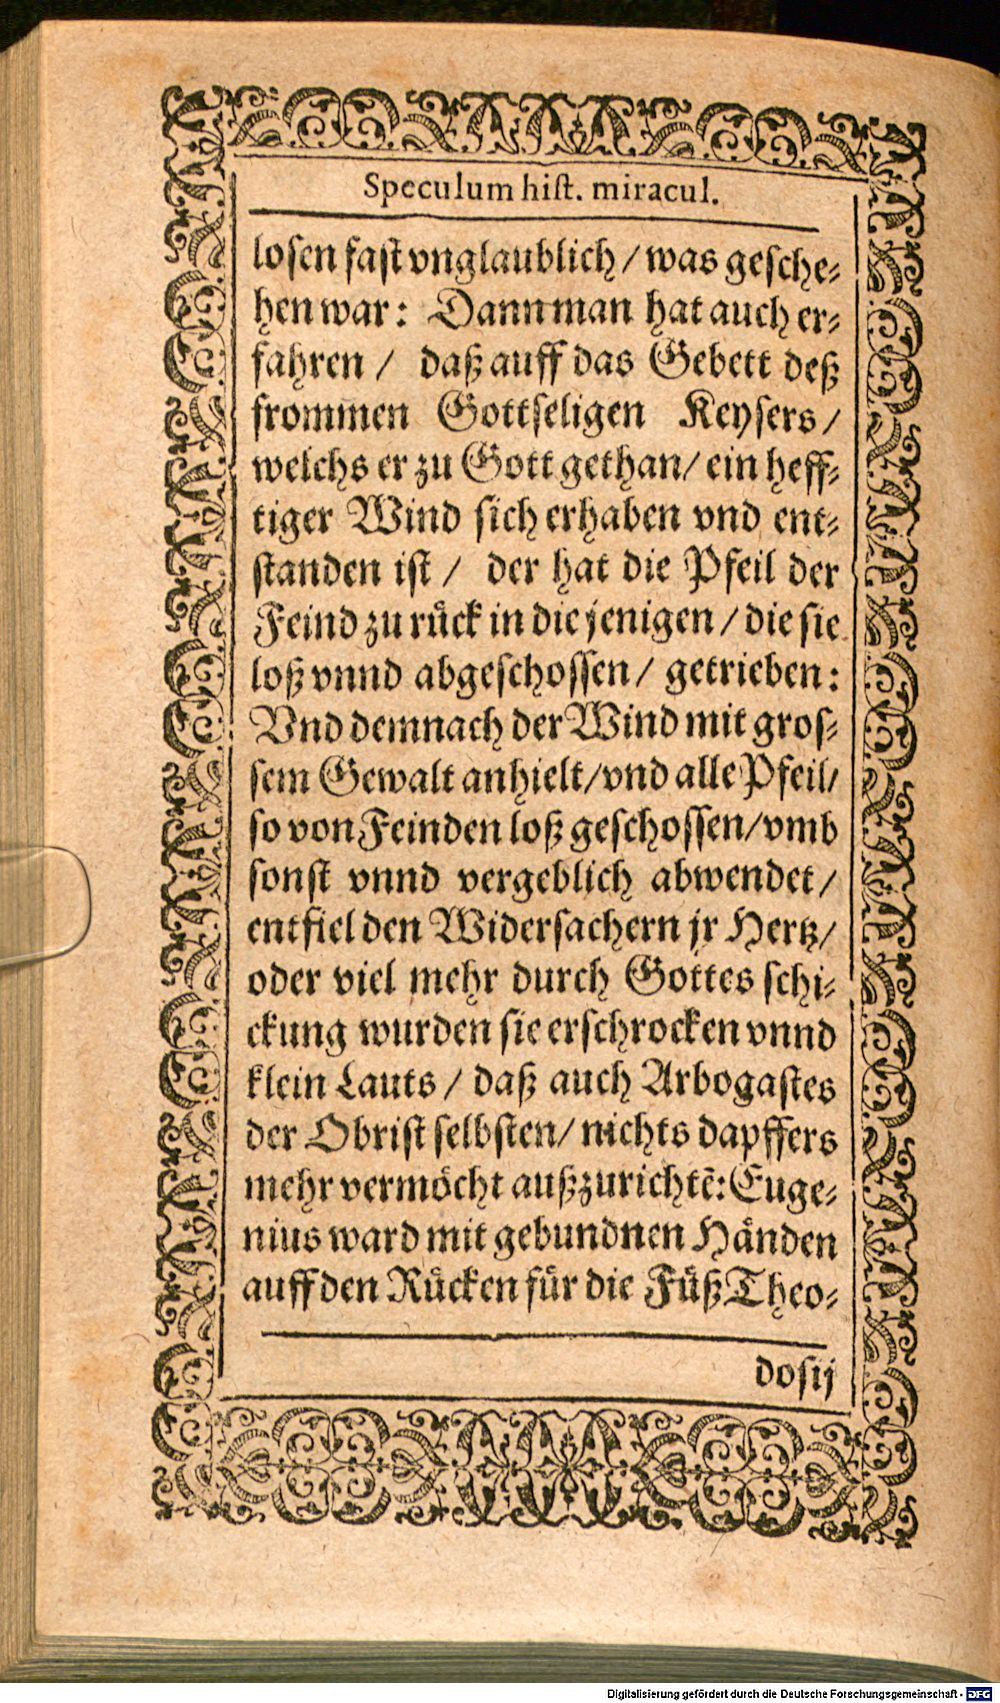 Speculum hiſt. miracul.
loſen faſt vnglaublich / was geſche⸗
hen war: Dann man hat auch er⸗
fahren / daß auff das Gebett deß
frommen Gottſeligen Keyſers /
welchs er zu Gott gethan / ein heff⸗
tiger Wind ſich erhaben vnd ent⸗
ſtanden iſt / der hat die Pfeil der
Feind zu růck in die jenigen / die ſie
loß vnnd abgeſchoſſen / getrieben:
Vnd demnach der Wind mit groſ⸗
ſem Gewalt anhielt / vnd alle Pfeil /
ſo von Feinden loß geſchoſſen / vmb
ſonſt vnnd vergeblich abwendet /
entfiel den Widerſachern jr Hertz /
oder viel mehr durch Gottes ſchi⸗
ckung wurden ſie erſchrocken vnnd
klein Lauts / daß auch Arbogaſtes
der Obriſt ſelbſten / nichts dapffers
mehr vermöcht außzurichtẽ: Euge⸗
nius ward mit gebundnen Händen
auff den Růcken fůr die Fůß Theo⸗
doſij
Digitalisierung gefördert durch die Deutsche Forschungsgemeinschaft - DFG